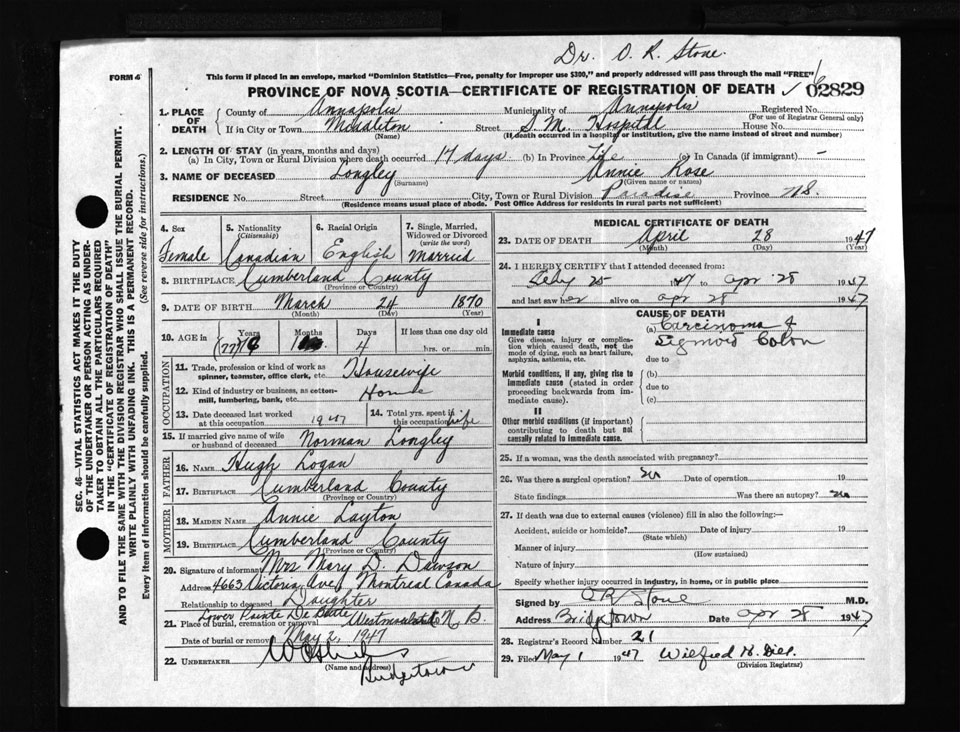 Dr. O. R. Stone
FORM 6
This form if placed in an envelope, marked "Dominion Statistics—Free, penalty for improper use $300," and properly addressed will pass through the mail "FREE"
PROVINCE OF NOVA SCOTIA—CERTIFICATE OF REGISTRATION OF DEATH 02829
1. PLACE OF DEATH County of Annapolis Municipality of Annapolis Registered No.
(For use of Registrar General only)
If in City or Town Middleton Street S. M. Hospital House No.
(Name) (If death occurred in a hospital or institution, give the name instead of street and number)
2. LENGTH OF STAY (in years, months and days)
(a) In City, Town or Rural Division where death occurred 17 days (b) In Province Life (c) In Canada (if immigrant) -
3. NAME OF DECEASED Longley Annie Rose
(Surname) (Given name or names)
RESIDENCE No. Street City, Town or Rural Division Paradise Province N.S.
(Residence means usual place of abode. Post Office Address for residents in rural parts not sufficient)
SEC. 46—VITAL STATISTICS ACT MAKES IT THE DUTY
OF THE UNDERTAKER OR PERSON ACTING AS UNDER-
TAKER TO OBTAIN ALL THE PARTICULARS REQUIRED
IN THE "CERTIFICATE OF REGISTRATION OF DEATH"
AND TO FILE THE SAME WITH THE DIVISION REGISTRAR WHO SHALL ISSUE THE BURIAL PERMIT.
WRITE PLAINLY WITH UNFADING INK. THIS IS A PERMANENT RECORD.
Every item of information should be carefully supplied. (See reverse side for instructions.)
4. Sex 5. Nationality (Citizenship) 6. Racial Origin 7. Single, Married, Widowed or Divorced (write the word)
Female Canadian English Married
8. BIRTHPLACE Cumberland County
(Province or County)
9. DATE OF BIRTH March 24 1870
(Month) (Day) (Year)
10. AGE in Years Months Days If less than one day old
(77) 1 4 hrs. or min.
OCCUPATION
11. Trade, profession or kind of work as spinner, teamster, office clerk, etc. Housewife
12. Kind of industry or business, as cotton-mill, lumbering, bank, etc. Home
13. Date deceased last worked at this occupation 1947 14. Total yrs. spent in this occupation life
15. If married give name of wife or husband of deceased Norman Longley
FATHER
16. NAME Hugh Logan
17. BIRTHPLACE Cumberland County
(Province or County)
MOTHER
18. MAIDEN NAME Annie Layton
19. BIRTHPLACE Cumberland County
(Province or County)
20. Signature of informant Mrs Mary D. Dawson
Address 4663 Victoria Ave, Montreal Canada
Relationship to deceased Daughter
Lower Pointe De Bute
21. Place of burial, cremation or removal Westmorland N. B.
Date of burial or removal May 2, 1947
22. UNDERTAKER
(Name and address)
Bridgetown
MEDICAL CERTIFICATE OF DEATH
23. DATE OF DEATH April 28 1947
(Month) (Day) (Year)
24. I HEREBY CERTIFY that I attended deceased from:
25 1947 to apr 28 1947
and last saw her alive on apr 28 1947
CAUSE OF DEATH
I
Immediate cause (a) Carcinoma of
Sigmoid Colon
Give disease, injury or complication which caused death, not the mode of dying, such as heart failure, asphyxia, asthenia, etc. due to
Morbid conditions, if any, giving rise to immediate cause (stated in order proceeding backwards from immediate cause). (b) due to (c)
II
Other morbid conditions (if important) contributing to death but not causally related to immediate cause.
25. If a woman, was the death associated with pregnancy?
26. Was there a surgical operation? Date of operation 19
State findings Was there an autopsy? no
27. If death was due to external causes (violence) fill in also the following:—
Accident, suicide or homicide? Date of injury 19
(State which)
Manner of injury
(How sustained)
Nature of injury
Specify whether injury occurred in industry, in home, or in public place
Signed by O R Stone M.D.
Address Bridgetown Date apr 28 1947
28. Registrar's Record Number 21
29. Filed May 1 1947 Wilfred
(Division Registrar)